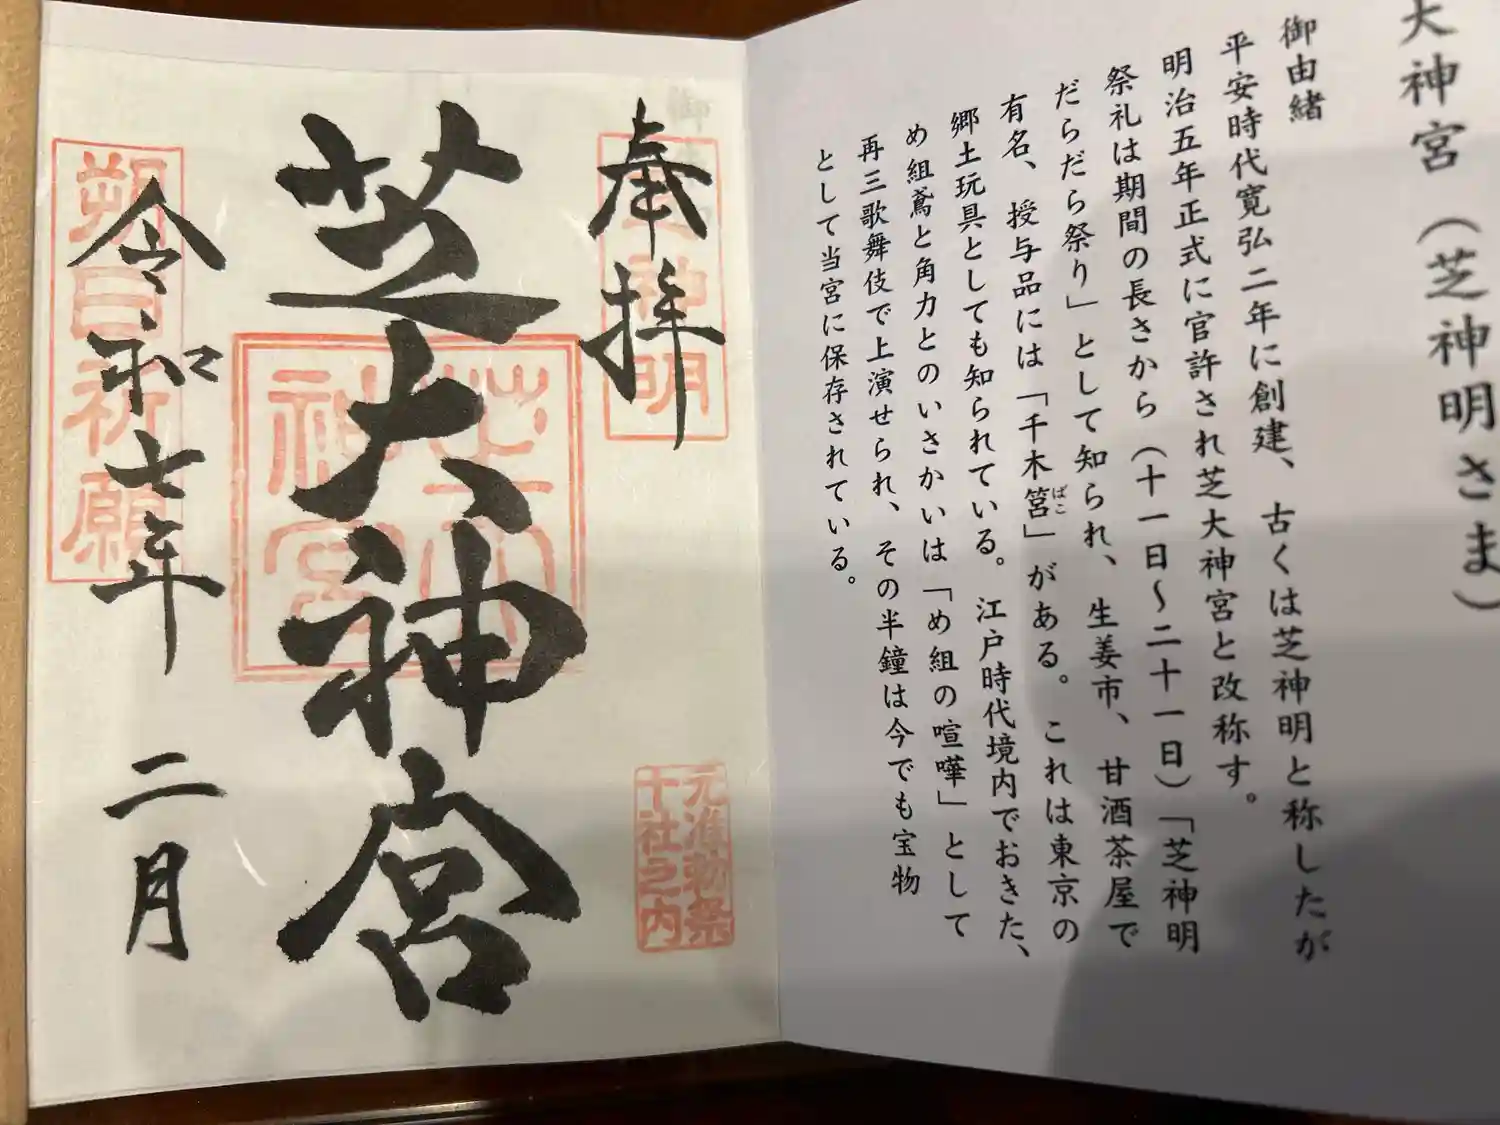 大神宮（芝神明さま）
御由緒
平安時代寛弘二年に創建、古くは芝神明と称したが
明治五年正式に官許され芝大神宮と改称す。
祭礼は期間の長さから（十一日～二十一日）「芝神明
だらだら祭り」として知られ、生姜市、甘酒茶屋で
有名、授与品には「千木筥」がある。これは東京の
ばこ
郷土玩具としても知られている。江戸時代境内でおきた、
め組鳶と角力とのいさかいは「め組の喧嘩」として
再三歌舞伎で上演せられ、その半鐘は今でも宝物
として当宮に保存されている。
奉拝
神明
元准勅祭
十社之内
芝大神宮
芝大神宮
令和七年 二月
朔日祈願